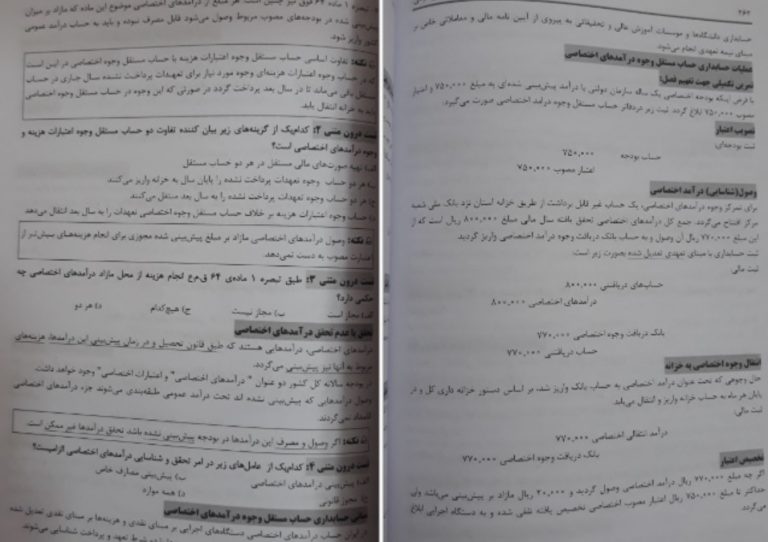 تبصره ۱ ماده ۶۴ فوق نیز چنین است هر مبلغ از درآمدهای اختصاصی موضوع این ماده که مازاد بر میزان
پیش‌بینی شده در بودجه‌های مصوب مربوط وصول می‌شود قابل مصرف نبوده و باید به حساب درآمد عمومی
کشور واریز شود.
نکته: تفاوت اساسی حساب مستقل وجوه اعتبارات هزینه با حساب مستقل وجوه اختصاصی در این است
که در حساب وجوه اعتبارات هزینه‌ای وجوه مورد نیاز برای تعهدات پرداخت نشده سال جاری در حساب
مستقل باقی می‌ماند تا در سال بعد پرداخت گردد در صورتی که این وجوه در حساب مستقل وجوه اختصاصی
باید به خزانه انتقال یابد.
تست درون متنی ۲: کدام‌یک از گزینه‌های زیر بیان کننده تفاوت دو حساب مستقل وجوه اعتبارات هزینه و
وجوه درآمدهای اختصاصی است؟
الف) تهیه صورت‌های مالی مستقل در هر دو حساب مستقل
ب) هر دو حساب وجوه تعهدات پرداخت نشده را پایان سال به خزانه واریز می‌کنند
ج) هر دو حساب وجوه تعهدات پرداخت نشده را به سال بعد منتقل می‌کنند
د) حساب وجوه اعتبارات هزینه بر خلاف حساب مستقل وجوه اختصاصی تعهدات را به سال بعد انتقال می‌دهد
نکته: وصول درآمدهای اختصاصی مازاد بر مبلغ پیش‌بینی شده مجوزی برای انجام هزینه‌های بیش‌تر از
اعتبارات مصوب به دست نمی‌دهد.
تست درون متنی ۳: طبق تبصره ۱ ماده‌ی ۶۴ ق.م.ع انجام هزینه از محل مازاد درآمدهای اختصاصی چه
حکمی دارد؟
الف) مجاز است ب) مجاز نیست ج) هیچ‌کدام د) هر دو
تحقق یا عدم تحقق درآمدهای اختصاصی
درآمدهای اختصاصی، درآمدهایی هستند که طبق قانون تحصیل و در زمان پیش‌بینی این درآمدها، هزینه‌های
مربوط به آنها نیز پیش‌بینی می‌گردد.
در بودجه سالانه کل کشور دو عنوان " درآمدهای اختصاصی" و اعتبارات اختصاصی" وجود خواهد داشت.
وصول درآمدهایی که پیش‌بینی نشده اند تحت درآمد عمومی طبقه‌بندی می‌شوند جزء درآمدهای اختصاصی
قلمداد نمی‌گردند.
نکته: اگر وصول و مصرف این درآمدها در بودجه پیش‌بینی نشده باشد تحقق درآمدها غیر ممکن است.
تست درون متنی ۴: کدام‌یک از عامل‌های زیر در امر تحقق و شناسایی درآمدهای اختصاصی الزامیست؟
الف) پیش‌بینی درآمدهای اختصاصی ب) پیش‌بینی مصارف خاص
ج) مجوز قانونی د) همه موارد
مبانی حسابداری حساب مستقل وجوه درآمدهای اختصاصی
در ایران حساب درآمدهای اختصاصی دستگاههای اجرایی بر مبنای نقدی و هزینه‌ها بر مبنای نقدی تعدیل شده
شرط تعهد و پرداخت شناسایی می‌شوند
۲۶۲
حسابداری دانشگاهها و موسسات آموزش عالی و تحقیقاتی به پیروی از آیین نامه مالی و معاملاتی خاص بر
مبنای نیمه تعهدی انجام می‌شود.
عملیات حسابداری حساب مستقل وجوه درآمدهای اختصاصی
تمرین تکمیلی جهت تفهیم فصل:
با فرض اینکه بودجه اختصاصی یک ساله سازمان دولتی با درآمد پیش‌بینی شده‌ای به مبلغ ۷۵۰,۰۰۰ و اعتبار
مصوب ۷۵۰,۰۰۰ ابلاغ گردد ثبت زیر دردفاتر حساب مستقل وجوه درآمد اختصاصی صورت می‌گیرد:
تصویب اعتبار
ثبت بودجه‌ای:
حساب بودجه ۷۵۰,۰۰۰
اعتبار مصوب ۷۵۰,۰۰۰
وصول(شناسایی) درآمد اختصاصی
برای تمرکز وجوه درآمدهای اختصاصی، یک حساب غیر قابل برداشت از طریق خزانه استان نزد بانک ملی شعبه
مرکز افتتاح می‌گردد. جمع کل درآمدهای اختصاصی تحقق یافته سال مالی مبلغ ۸۰۰,۰۰۰ ریال است که از
این مبلغ ۷۷۰,۰۰۰ ریال آن وصول و به حساب بانک دریافت وجوه درآمد اختصاصی واریز گردید
ثبت حسابداری با مبنای تعهدی تعدیل شده بصورت زیر است:
ثبت مالی:
حساب‌های دریافتنی ۸۰۰,۰۰۰
درآمدهای اختصاصی ۸۰۰,۰۰۰
بانک دریافت وجوه اختصاصی ۷۷۰,۰۰۰
حساب دریافتنی ۷۷۰,۰۰۰
انتقال وجوه اختصاصی به خزانه
حال وجوهی که تحت عنوان درآمد اختصاصی به حساب، بانک واریز شد، بر اساس دستور خزانه داری کل و در
پایان هر ماه به حساب خزانه واریز و انتقال می‌یابد.
ثبت مالی:
درآمد انتقالی اختصاصی ۷۷۰,۰۰۰
بانک دریافت وجوه اختصاصی ۷۷۰,۰۰۰
تخصیص اعتبار
اگر چه مبلغ ۷۷۰,۰۰۰ ریال درآمد اختصاصی وصول گردید و ۲۰,۰۰۰ ریال مازاد بر پیش‌بینی می‌باشد ولی
حداکثر تا مبلغ ۷۵۰,۰۰۰ ریال اعتبار مصوب اختصاصی تخصیص یافته تلقی شده و به دستگاه اجرایی ابلاغ
می‌گردد